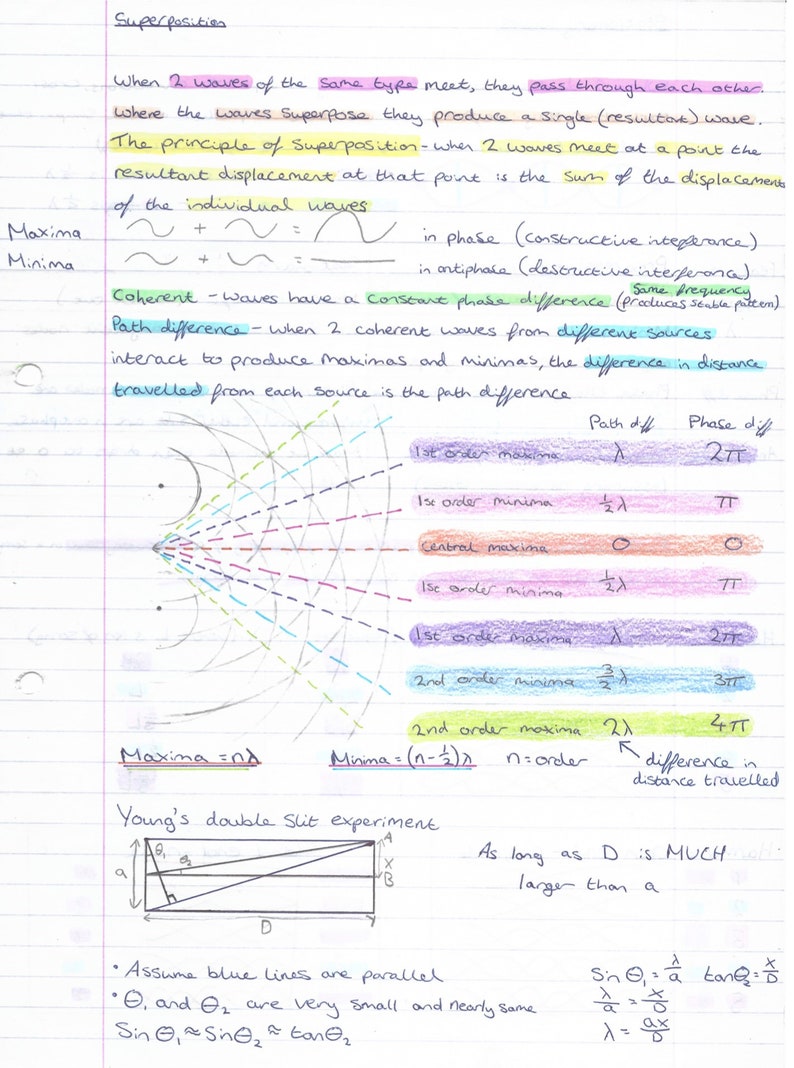 Superposition
When 2 waves of the same type meet, they pass through each other.
Where the waves superpose they produce a single (resultant) wave.
The principle of superposition - when 2 waves meet at a point the
resultant displacement at that point is the sum of the displacements
of the individual waves
Maxima + = in phase (constructive interferance)
Minima + = in antiphase (destructive interferance)
Coherent - waves have a constant phase difference (same frequency
(produces stable pattern)
Path difference - when 2 coherent waves from different sources
interact to produce maximas and minimas, the difference in distance
travelled from each source is the path difference
Path diff Phase diff
1st order maxima λ 2π
1st order minima 1/2 λ π
Central maxima 0 0
1st order minima 1/2 λ π
1st order maxima λ 2π
2nd order minima 3/2 λ 3π
2nd order maxima 2λ 4π
Maxima = nλ Minima = (n-1/2)λ n = order
difference in
distance travelled
Young's double slit experiment
a θ1 θ2 A x B D
As long as D is MUCH
larger than a
• Assume blue lines are parallel
• θ1 and θ2 are very small and nearly same
Sin θ1 ≈ Sin θ2 ≈ tan θ2
Sin θ1 = λ/a tan θ2 = x/D
λ/a = x/D
λ = ax/D